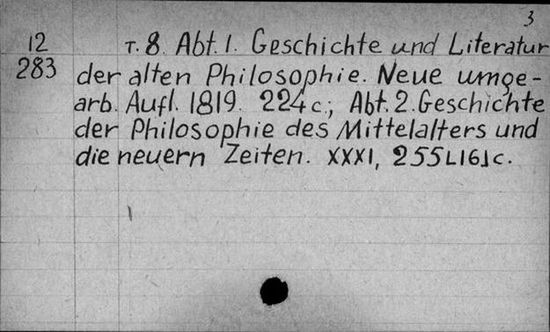 3
12
283
т. 8. Abt. 1. Geschichte und Literatur
der alten Philosophie. Neue umge-
arb. Aufl. 1819. 224 c.; Abt. 2. Geschichte
der Philosophie des Mittelalters und
die neuern Zeiten. XXXI, 255[16] c.